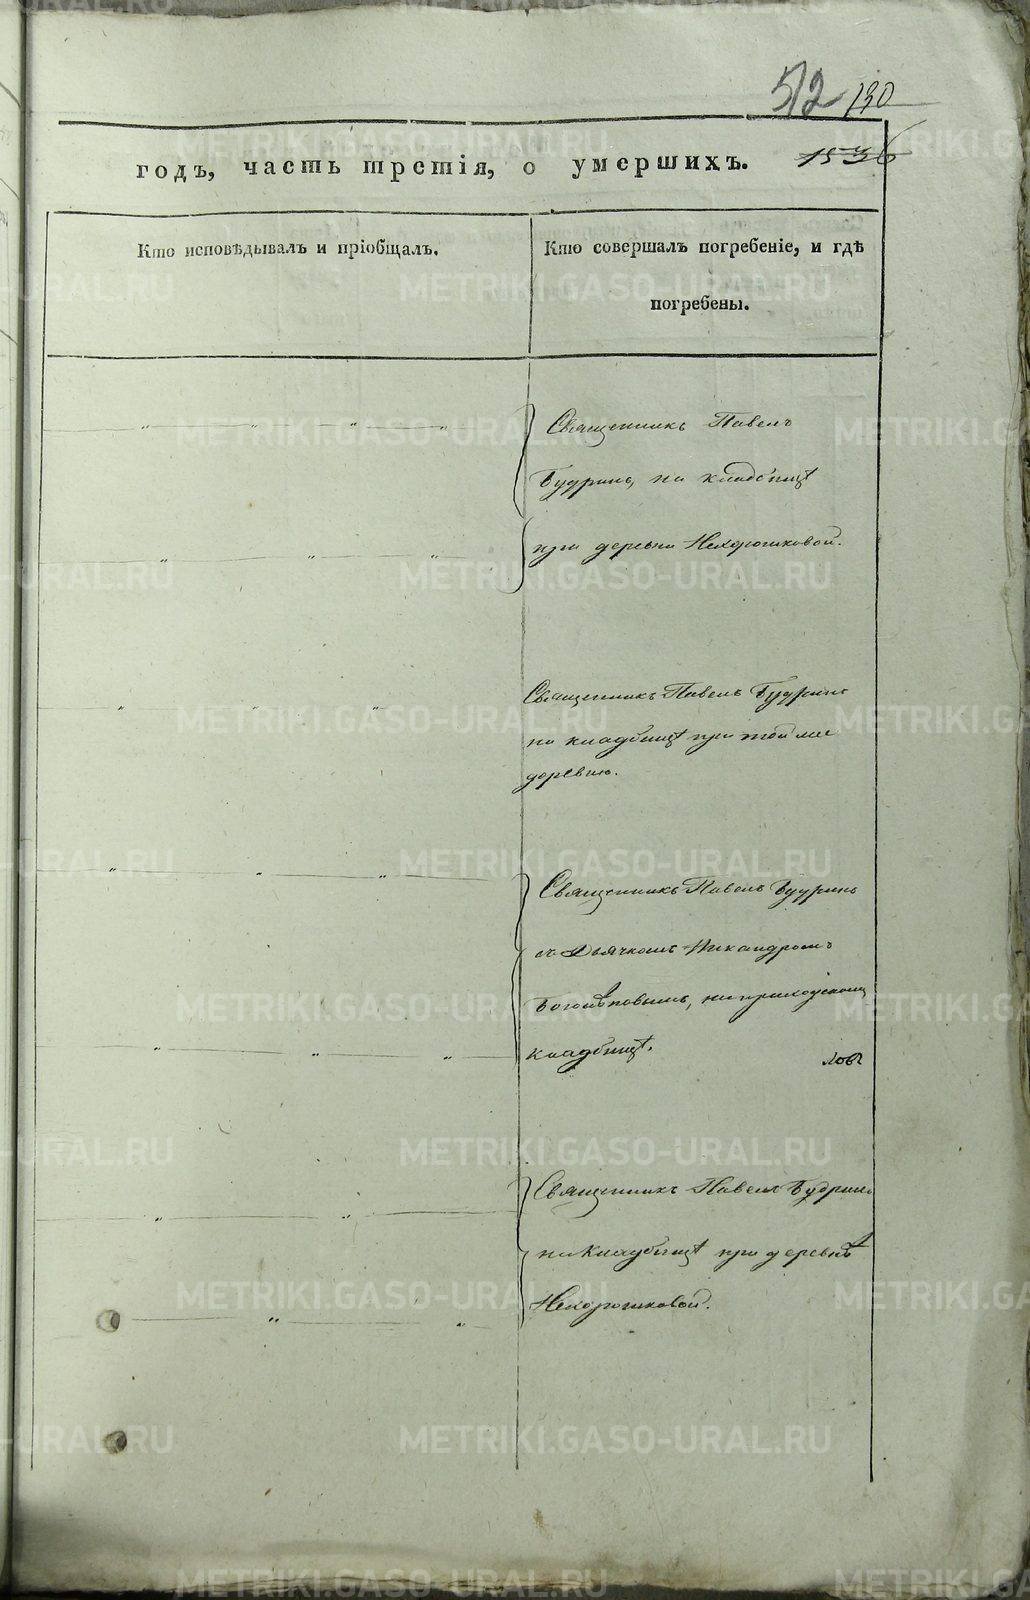 512 130
годъ, часть третія, о умершихъ. 1536
Кто исповѣдывалъ и пріобщалъ.
Кто совершалъ погребеніе, и гдѣ
погребены.
Священникъ Павелъ
Будринъ, на кладбищѣ
при деревни Нехорошковой.
Священникъ Павелъ Будринъ
на кладбищѣ при той же
деревню.
Священникъ Павелъ Будринъ
съ Дьячкомъ Никандромъ
на приходскомъ
кладбищѣ.
Священникъ Павелъ Будринъ
на кладбищѣ при деревнѣ
Нехорошковой.
METRIKI.GASO-URAL.RU